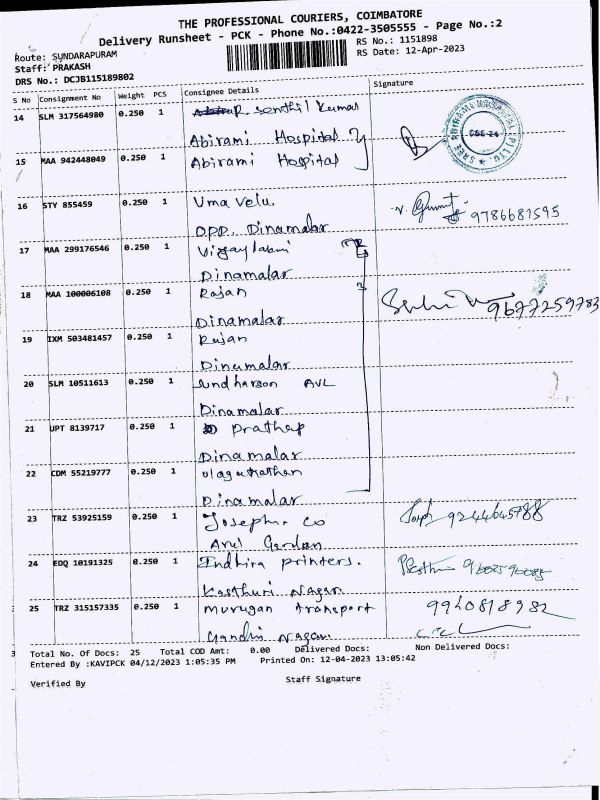 THE PROFESSIONAL COURIERS, COIMBATORE
Delivery Runsheet - PCK - Phone No.:0422-3505555 - Page No.:2
Route: SUNDARAPURAM
RS No.: 1151898
Staff: PRAKASH
RS Date: 12-Apr-2023
DRS No.: DCJB115189802
S No Consignment No Weight PCS Consignee Details Signature
14 SLM 317564980 0.250 1 R. Senthil Kumar
Abirami Hospital
15 MAA 942448049 0.250 1 Abirami Hospital
16 STY 855459 0.250 1 Uma Velu.
9786681595
OPP. Dinamalar
17 MAA 299176546 0.250 1 Vijayalaxmi
Dinamalar
18 MAA 100006108 0.250 1 Rajan
9677259783
Dinamalar
19 IXM 503481457 0.250 1 Rajan
Dinamalar
20 SLM 10511613 0.250 1 Sundharson AVL
Dinamalar
21 UPT 8139717 0.250 1 Prathap
Dinamalar
22 CDM 55219777 0.250 1 Ulaganathan
Dinamalar
23 TRZ 53925159 0.250 1 Joseph & Co
Arul Gardan
24 EDQ 10191325 0.250 1 Indhira printers.
Kasthuri Nagar
25 TRZ 315157335 0.250 1 Murugan transport 9940818982
Gandhi Nagar
Total No. Of Docs: 25 Total COD Amt: 0.00 Delivered Docs: Non Delivered Docs:
Entered By :KAVIPCK 04/12/2023 1:05:35 PM Printed On: 12-04-2023 13:05:42
Verified By Staff Signature